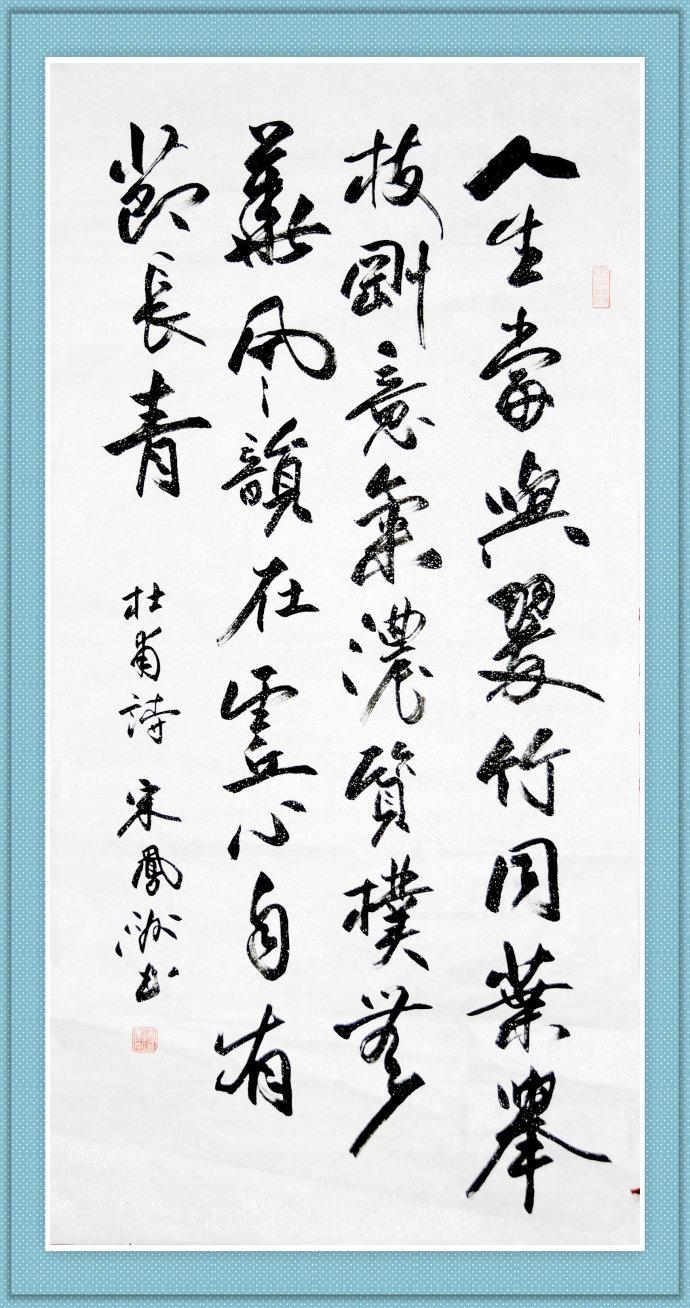 人生當與翠竹同葉舉
枝剛意氣濃質樸無
華風韻在虛心自有
節長青
杜甫詩 宋鳳洲書